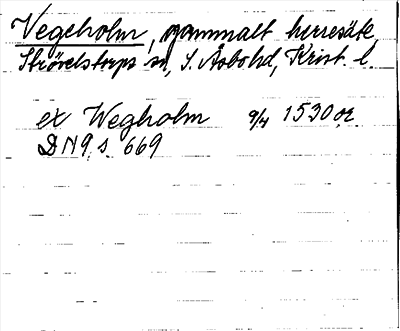 Vegeholm, gammalt herresäte,
Strövelstorps sn, S. Åsbo hd, Krist. l.
ex Wegholm 9/4 1530 or.
DN 9, s. 669